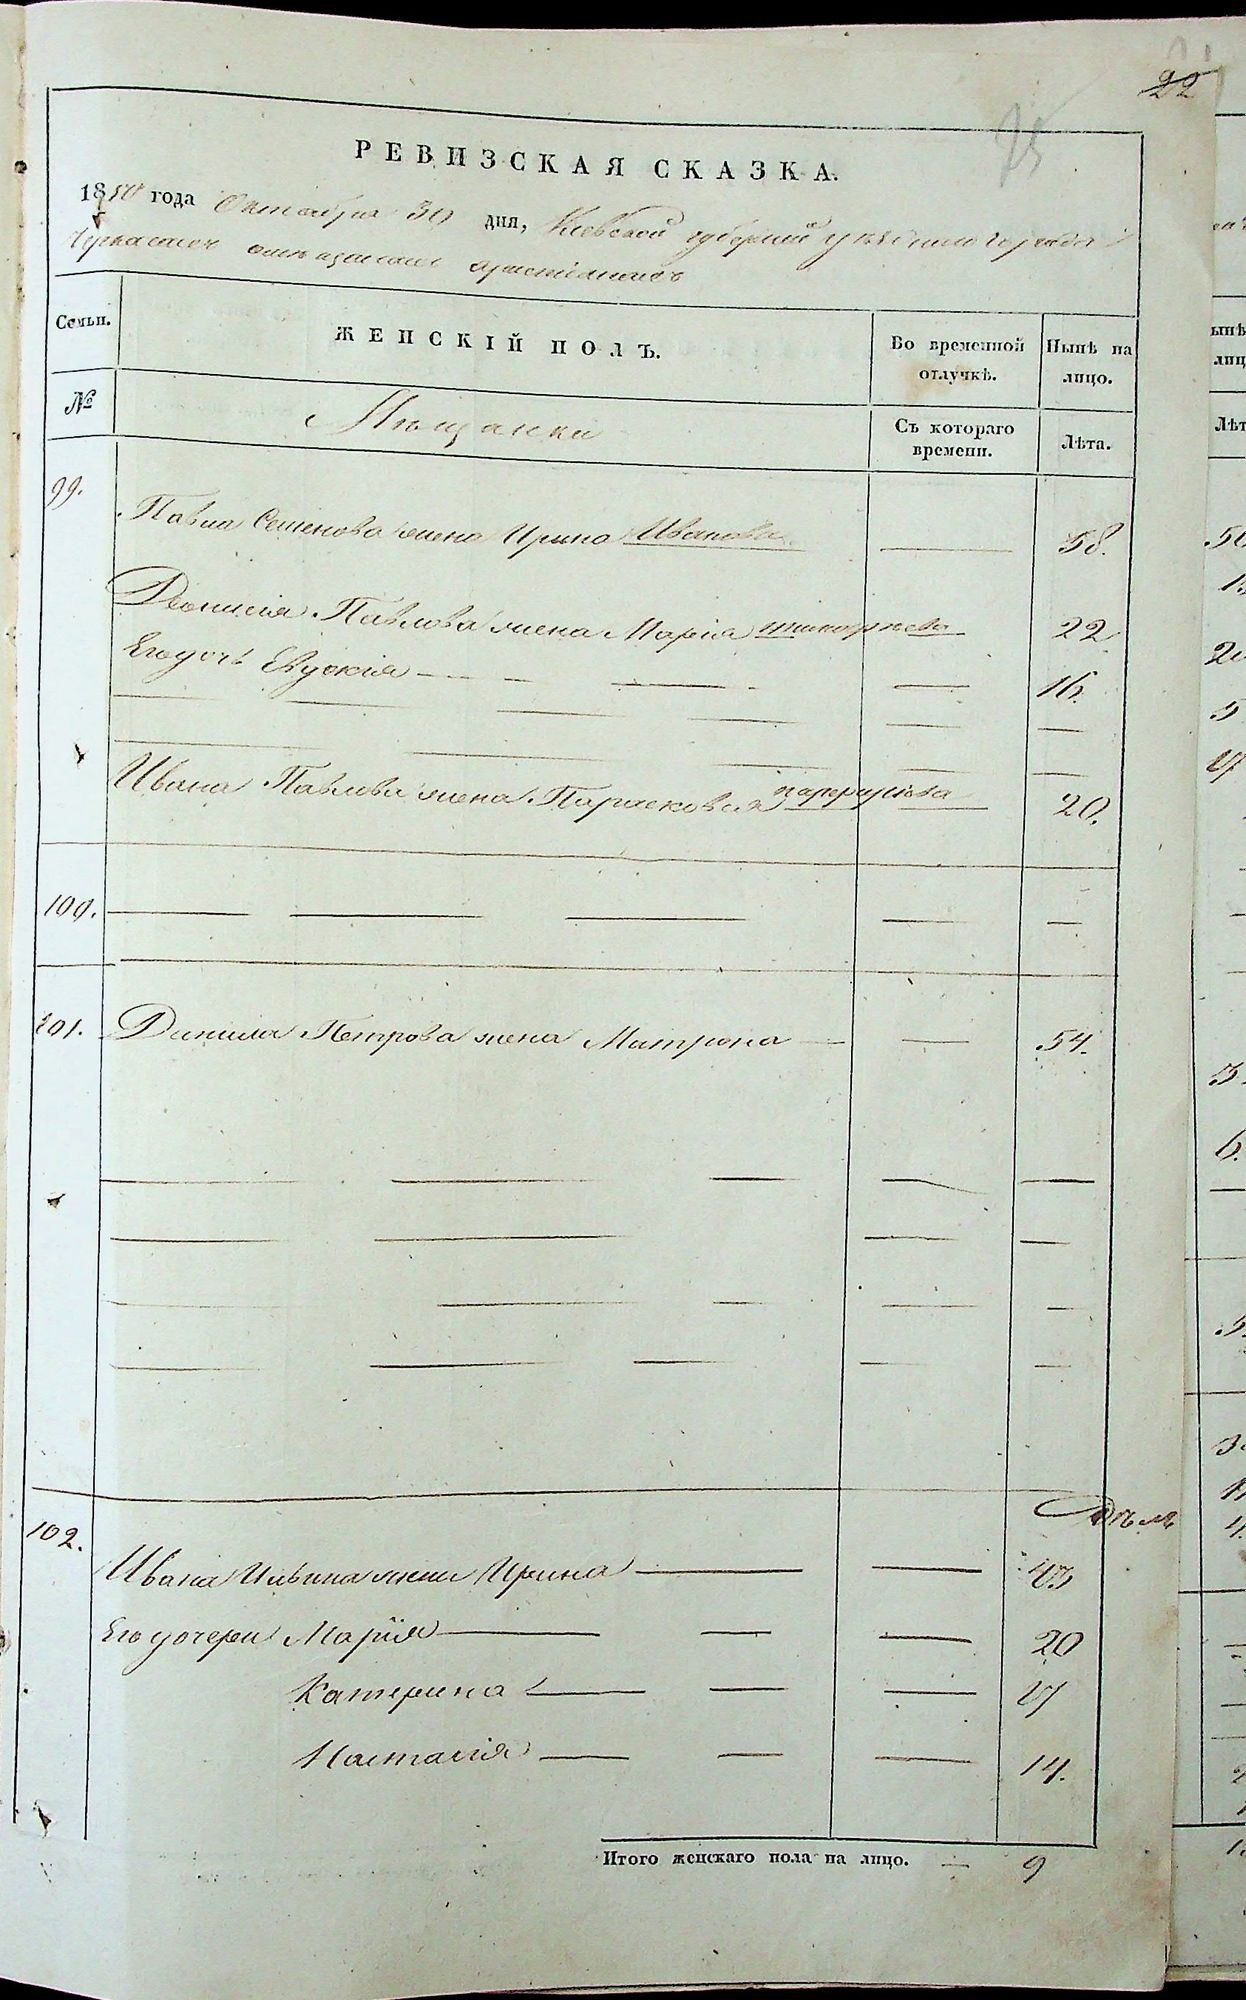 22
25
РЕВИЗСКАЯ СКАЗКА.
1850 года Октября 30 дня, Киевской губернии уезднаго города
Черкассъ христіанъ
Семьи. ЖЕНСКІЙ ПОЛЪ. Во временной отлучкѣ. Нынѣ на лицо.
№ Мѣщанки Съ котораго времени. Лѣта.
99.
Павла Семенова жена Ирина Иванова — 58.
Деонисія Павлова жена Марія 22
Его дочь Евдокія — — 16.
Ивана Павлова жена Парасковея 20.
100. — — — — —
101. Данила Петрова жена Матрона — — 54.
102.
Ивана Ильина жена Ирина — — 43
Его дочери Марія — — — 20
Катерина — — — 17
Настасія — — — 14.
Итого женскаго пола на лицо. — 9